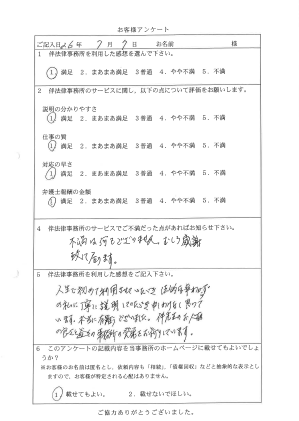 お客様アンケート
ご記入日 26 年 7 月 7 日 お名前 様
1 伴法律事務所を利用した感想を選んで下さい。
1.満足 2.まあまあ満足 3普通 4.やや不満 5.不満
2 伴法律事務所のサービスに関し、以下の点について評価をお願いします。
説明の分かりやすさ
1.満足 2.まあまあ満足 3普通 4.やや不満 5.不満
仕事の質
1.満足 2.まあまあ満足 3普通 4.やや不満 5.不満
対応の早さ
1.満足 2.まあまあ満足 3普通 4.やや不満 5.不満
弁護士報酬の金額
1.満足 2.まあまあ満足 3普通 4.やや不満 5.不満
4 伴法律事務所のサービスでご不満だった点があればお知らせ下さい。
不満は何もございません。むしろ感謝
致して居ります。
5 伴法律事務所を利用した感想をご記入下さい。
人生で初めて利用させていただき
の私に丁寧に説明していただき
います。本当に有難うございました。
6 このアンケートの記載内容を当事務所のホームページに載せてもよいでしょうか?
※お客様のお名前は匿名とし、依頼内容も「相続」、「債権回収」などと抽象的な表示とし
ますので、お客様が特定される心配はありません。
1.載せてもよい。 2.載せないでほしい。
ご協力ありがとうございました。